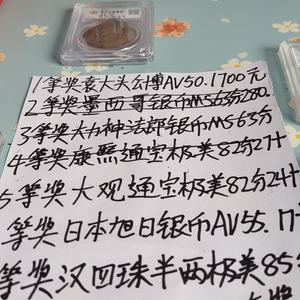 1等奖袁大头公博AV50.1700元
2等奖墨西哥银币MS63分280
3等奖大力神法郎银币MS63分
4等奖康熙通宝极美82分27十
5等奖大观通宝极美82分24十
等奖日本旭日银币AV55.17
等奖汉四珠半两极美85